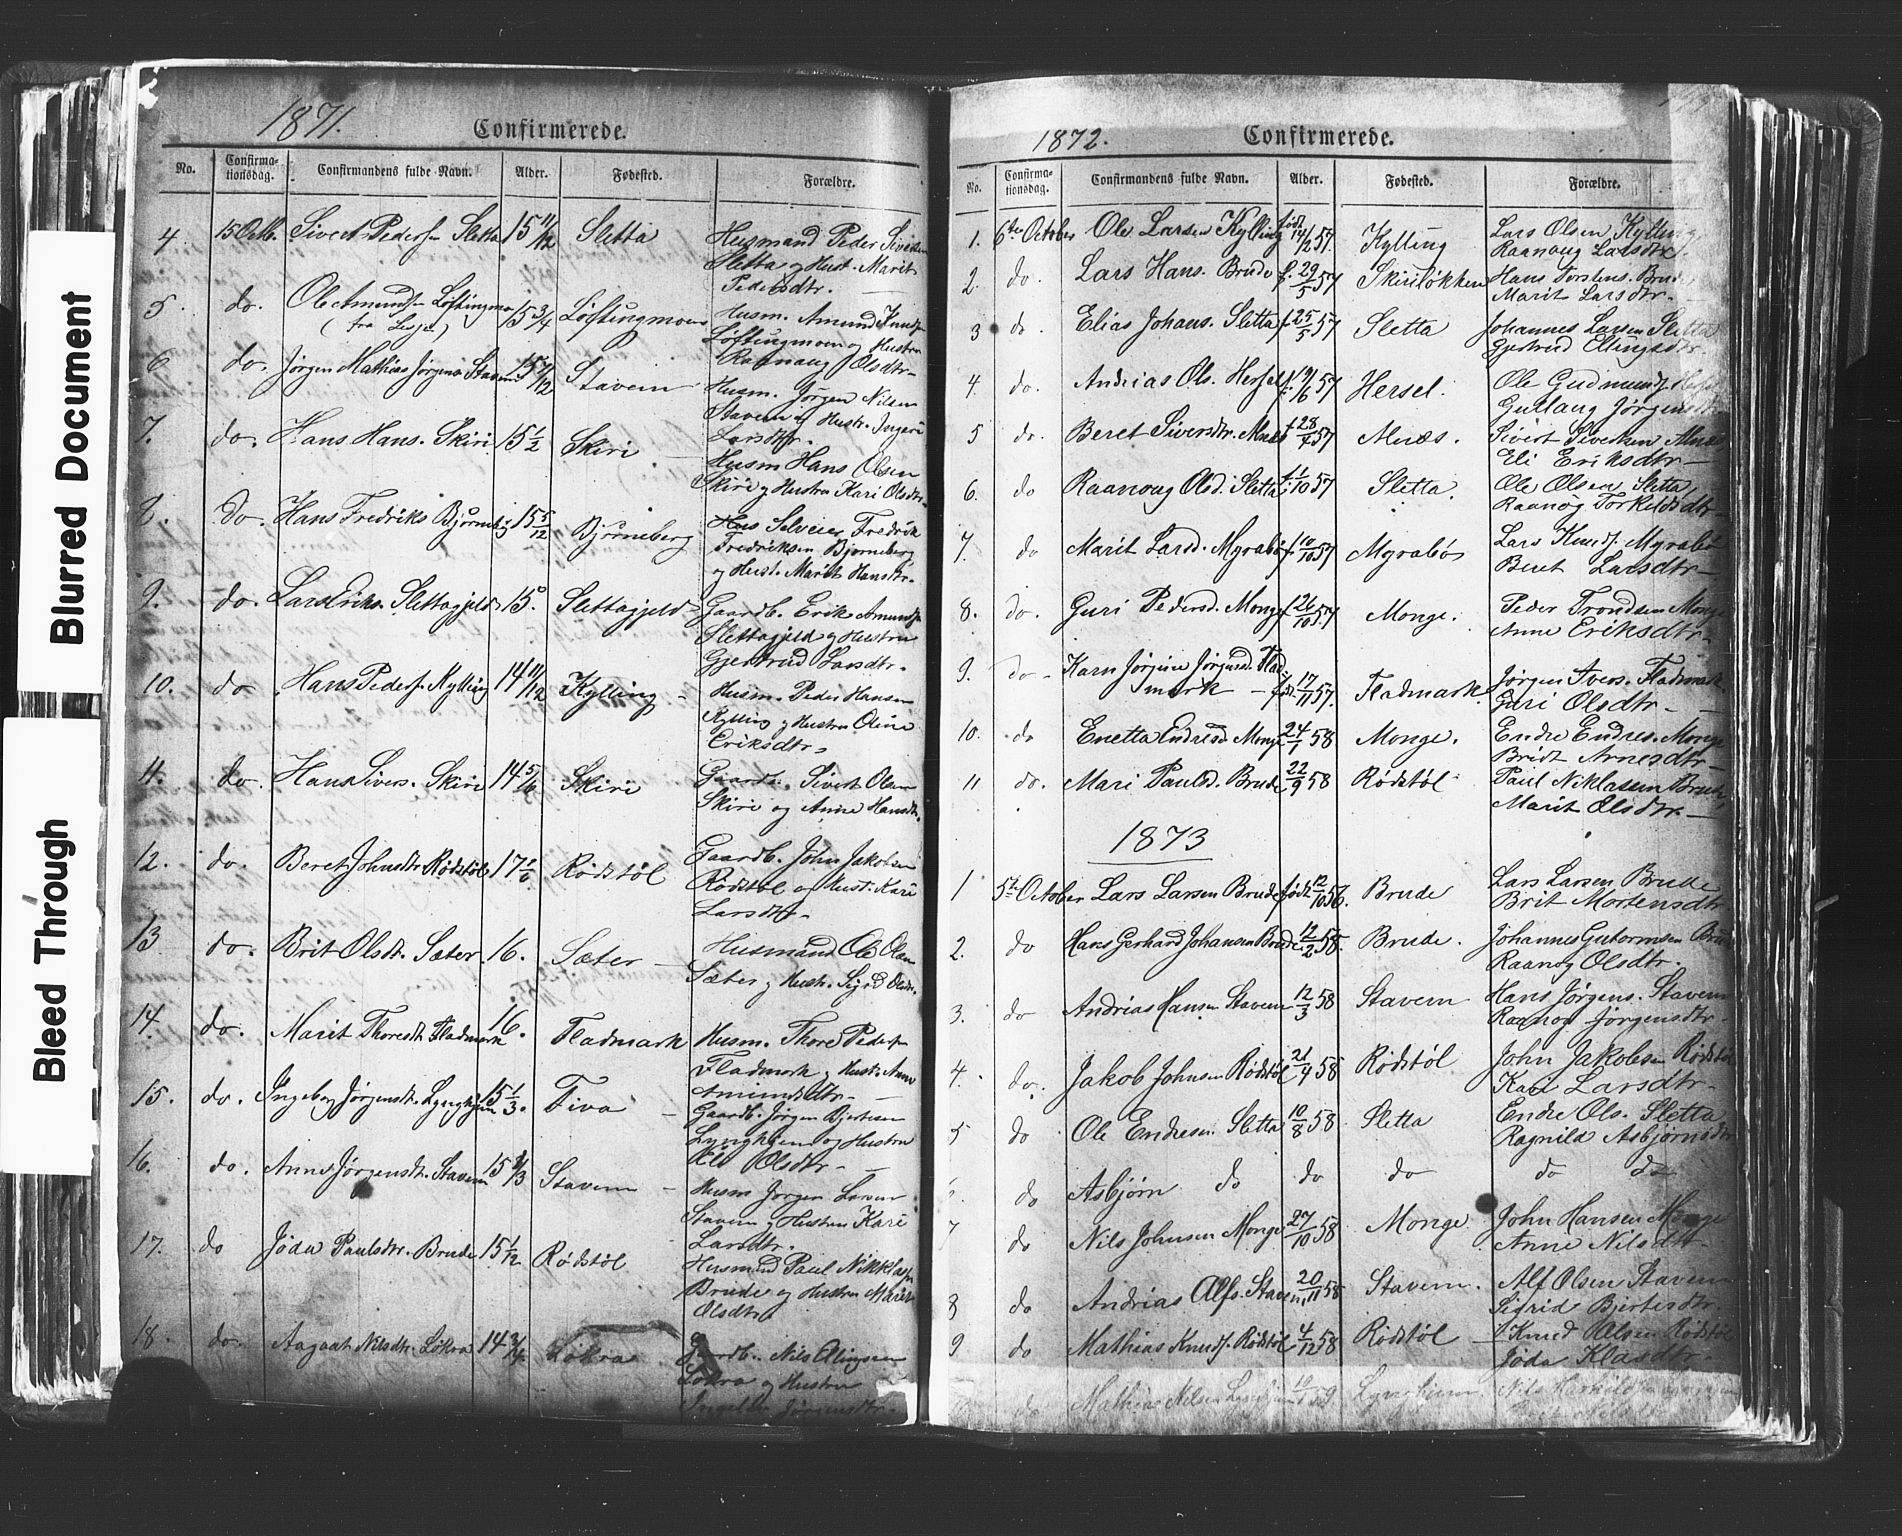 Blurred Document
Bleed Through
1871. Confirmerede.
No. Confirmationsdag. Confirmandens fulde Navn. Alder. Fødested. Forældre.
4 15 Octb. Sivert Peders. Sletta 15 11/12 Sletta Husmand Peder Sivertsen
Sletta og Hust. Marit
Pedersdtr. —
5. do. Ole Amunds. Løftingmo 15 3/4 Løftingmoen Husm. Amund Knuds.
(fra Lesja) Løftingmoen og Hustru
Raanaug Olsdtr —
6 do. Jørgen Mathias Jørgens Stavem 15 7/12 Stavem Husm. Jørgen Nilsen
Stavem og Hustr. Ingeri
Larsdtr.
7. do. Hans Hans. Skiri 15 1/2 Skiri Husm Hans Olsen
Skiri og Hustru Kari Olsdtr.
8. do. Hans Fredriks Bjørneberg 15 5/12 Bjørneberg Fredrik
Fredriksen Bjørneberg
og Hust. Marit Hansdtr.
9. do. Lars Eriks. Slettagjeld 15. Slettagjeld Gaardb. Erik Amunds.
Slettagjeld og Hustru
Gjertrud Larsdtr.
10. do Hans Peders. Kylling 14 11/12 Kylling — Husm. Peder Hansen
Kylling og Hustru Oline
Eriksdtr.
11. do. Hans Sivers. Skiri 14 5/6 Skiri Gaardb. Sivert Olsen
Skiri og Anne Hansdtr.
12. do. Beret Johnsdtr Rødstøl 17 Rødstøl Gaardb. John Jakobsen
Rødstøl og Hust. Kari
Larsdtr —
13 do. Brit Olsdtr. Sæter 16. Sæter — Husmand Ole Olsen
Sæter og Hustr. Sigrid Olsdtr.
14. do. Marit Thoresdtr Fladmark 16. Fladmark Husm. Thore Peders.
Fladmark og Hust. Anne
Amundsdtr. —
15. do. Ingeborg Jørgensdt. Lyngheim 15 1/3. Fiva — Gaardb. Jørgen Bjertesen
Lyngheim og Hustru
Eli Olsdtr —
16. do. Anne Jørgensdt. Stavem 15 Stavem — Husm Jørgen Larsen
Stavem og Hustru Kari
Larsdtr.
17. do Jøda Paulsdtr. Brude 15 1/12 Rødstøl Husmand Paul Nikklas.
Brude og Hustru Marit
Olsdtr.
18. do. Aagaat Nilsdtr. Løkra 14 3/4 Løkra Gaardb. Nils Ellingsen
Løkra og Hustru
Jørgensdtr.
1872. Confirmerede.
No. Confirmationsdag. Confirmandens fulde Navn. Alder. Fødested. Forældre.
1. 6te October Ole Larsen Kylling født 14/2 57. Kylling Lars Olsen Kylling
Raanaug Larsdtr.
2. do. Lars Hans. Brude f. 29/5 57 Skiriløkken Hans Torstens. Brude
Marit Larsdtr.
3 do. Elias Johans. Sletta f. 25/5 57 Sletta Johannes Larsen Sletta
Gjertrud Ellingsdtr.
4. do. Andrias Ols. Hersel f. 9/6 57 Hersel. Ole Gudmunds. Hersel
Gullaug Jørgensdtr
5 do. Beret Siversdtr. Alnæs f. 28/7 57 Alnæs. Sivert Sivertsen Alnæs
Eli Eriksdtr —
6. do Raanoug Olsd. Sletta f. 1/10 57 Sletta. Ole Olsen Sletta
Raanog Torkildsdtr —
7. do Marit Larsd. Myrabø f. 10/10 57 Myrabø Lars Knuds. Myrabø
Beret Larsdtr —
8. do. Guri Pedersd. Monge f 26/10 57 Monge. Peder Trondsen Monge
Anne Eriksdtr.
9. do. Karn Jørgine Jørgensd. Flad-
mark — f. 17/11 57. Fladmark. Jørgen Ivers. Fladmark
Guri Olsdtr —
10. do Enetta Endresd. Monge 24/1 58 Monge. Endre Endres. Monge
Brit Arnesdtr —
11 do. Mari Paulsd. Brude 22/9 58 Rødstøl Paul Niklasen Brude
Marit Olsdtr. —
1873
1 5te October Lars Larsen Brude født 12/10 56. Brude Lars Larsen Brude
Brit Mortensdtr
2. do Hans Gerhard Johansen Brude 12/2 58. Brude. Johannes Gutormsen Brude
Raanog Olsdtr.
3. do Andrias Hansen Stavem 12/3 58 Stavem Hans Jørgens. Stavem
Raanog Jørgensdtr.
4. do. Jakob Johnsen Rødstøl 21/4 58 Rødstøl John Jakobsen Rødstøl
Kari Larsdtr —
5 do Ole Endresen Sletta 10/8 58 Sletta Endre Ols. Sletta
Ragnild Asbjørnsdtr
6. do Asbjørn do do do do do
7 do Nils Johnsen Monge 27/10 58 Monge John Hansen Monge
Anne Nilsdtr.
8 do Andrias Alfs. Stavem 20/11 58 Stavem. Alf Olsen Stavem
Sigrid Bjertesdtr.
9. do Mathias Knuds. Rødstøl 4/12 58 Rødstøl Knud Olsen Rødstøl
Jøda Klasdtr.
do Mathias Nilsen Lyngheim 59 Lyngheim. Nils